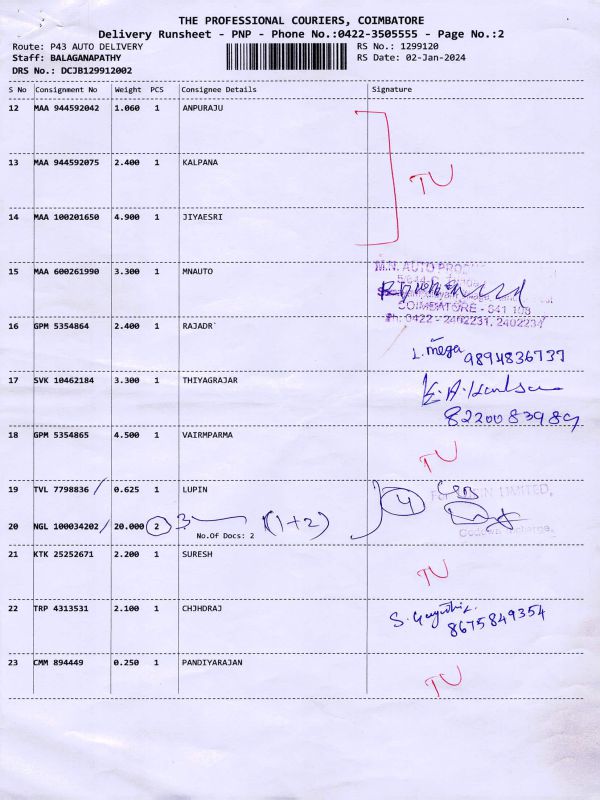 THE PROFESSIONAL COURIERS, COIMBATORE
Delivery Runsheet - PNP - Phone No.:0422-3505555 - Page No.:2
Route: P43 AUTO DELIVERY RS No.: 1299120
Staff: BALAGANAPATHY RS Date: 02-Jan-2024
DRS No.: DCJB129912002
S No Consignment No Weight PCS Consignee Details Signature
12 MAA 944592042 1.060 1 ANPURAJU
13 MAA 944592075 2.400 1 KALPANA TU
14 MAA 100201650 4.900 1 JIYAESRI
15 MAA 600261990 3.300 1 MNAUTO
M.N. AUTO
COIMBATORE - 641 103
Ph: 0422 - 2402231, 2402234
16 GPM 5354864 2.400 1 RAJADR`
9894836737
17 SVK 10462184 3.300 1 THIYAGRAJAR
8220083989
18 GPM 5354865 4.500 1 VAIRMPARMA TU
19 TVL 7798836 / 0.625 1 LUPIN 4
For LUPIN LIMITED,
20 NGL 100034202 / 20.000 2 3 (1+2)
No.Of Docs: 2
21 KTK 25252671 2.200 1 SURESH TU
22 TRP 4313531 2.100 1 CHJHDRAJ
8675849354
23 CMM 894449 0.250 1 PANDIYARAJAN TU